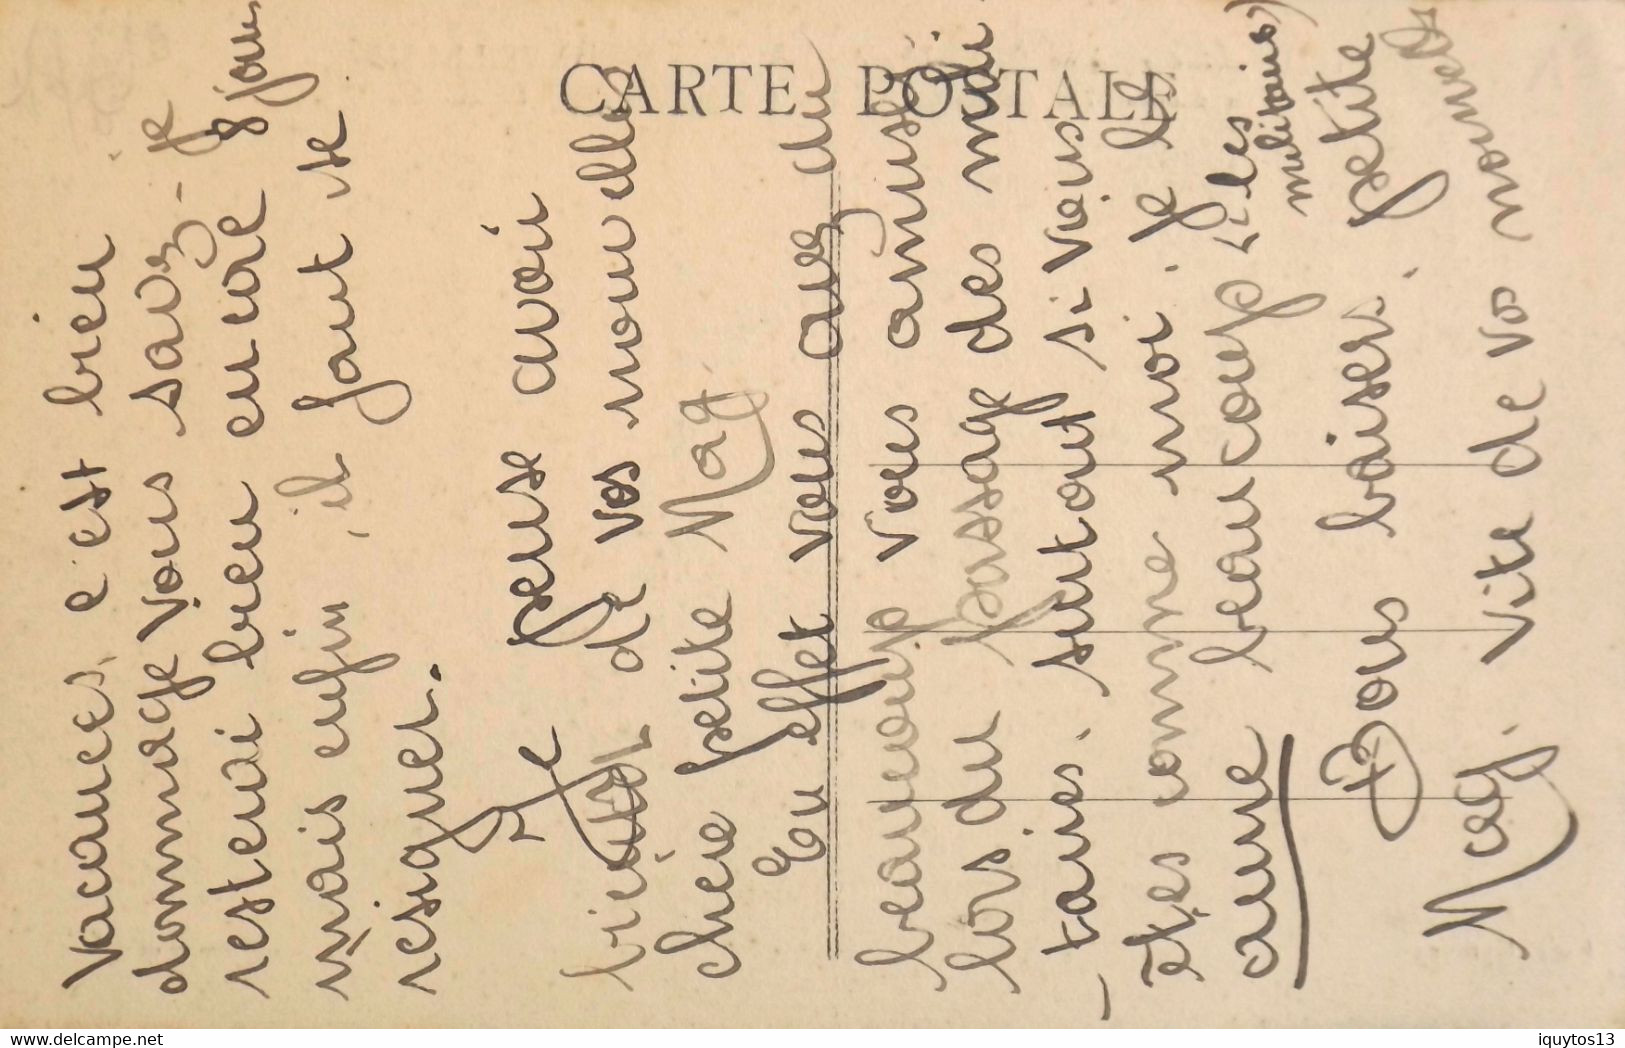 CARTE POSTALE
vacances, c'est bien
dommage vous savez - je
resterai bien encore 8 jours
mais enfin, il faut se
résigner.
Je pense avoir
bientôt de vos nouvelles
chère petite Mag
En effet vous avez du
beaucoup vous amuser
lors du passage des mili
-taires. surtout si vous
êtes comme moi. je le
aime beaucoup "les
militaires")
Bous baisers. petite
Meg. vite de vos nouvelles
iquytos13
delcampe.net